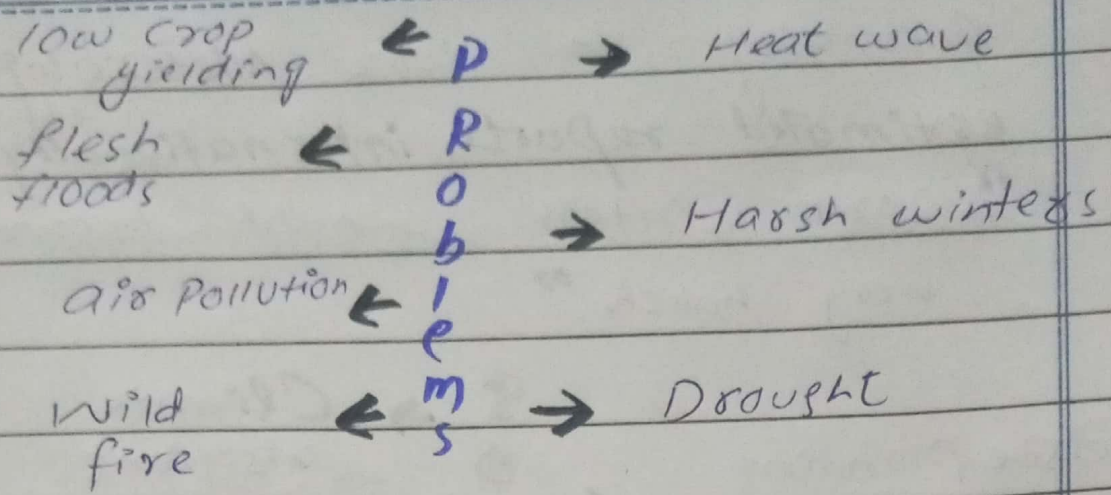 low crop
yielding
← P → Heat wave
flesh
floods
← R
O
b → Harsh winters
air pollution ← l
e
Wild
fire
← m → Drought
s